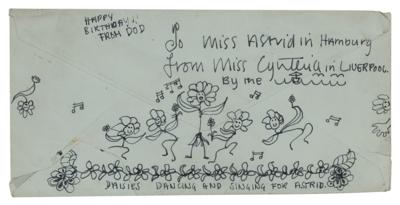 HAPPY
BIRTHDAY
FROM DOD
To Miss Astrid in Hamburg
from Miss Cynthia in LIVERPOOL.
By the
DAISIES DANCING AND SINGING FOR ASTRID.